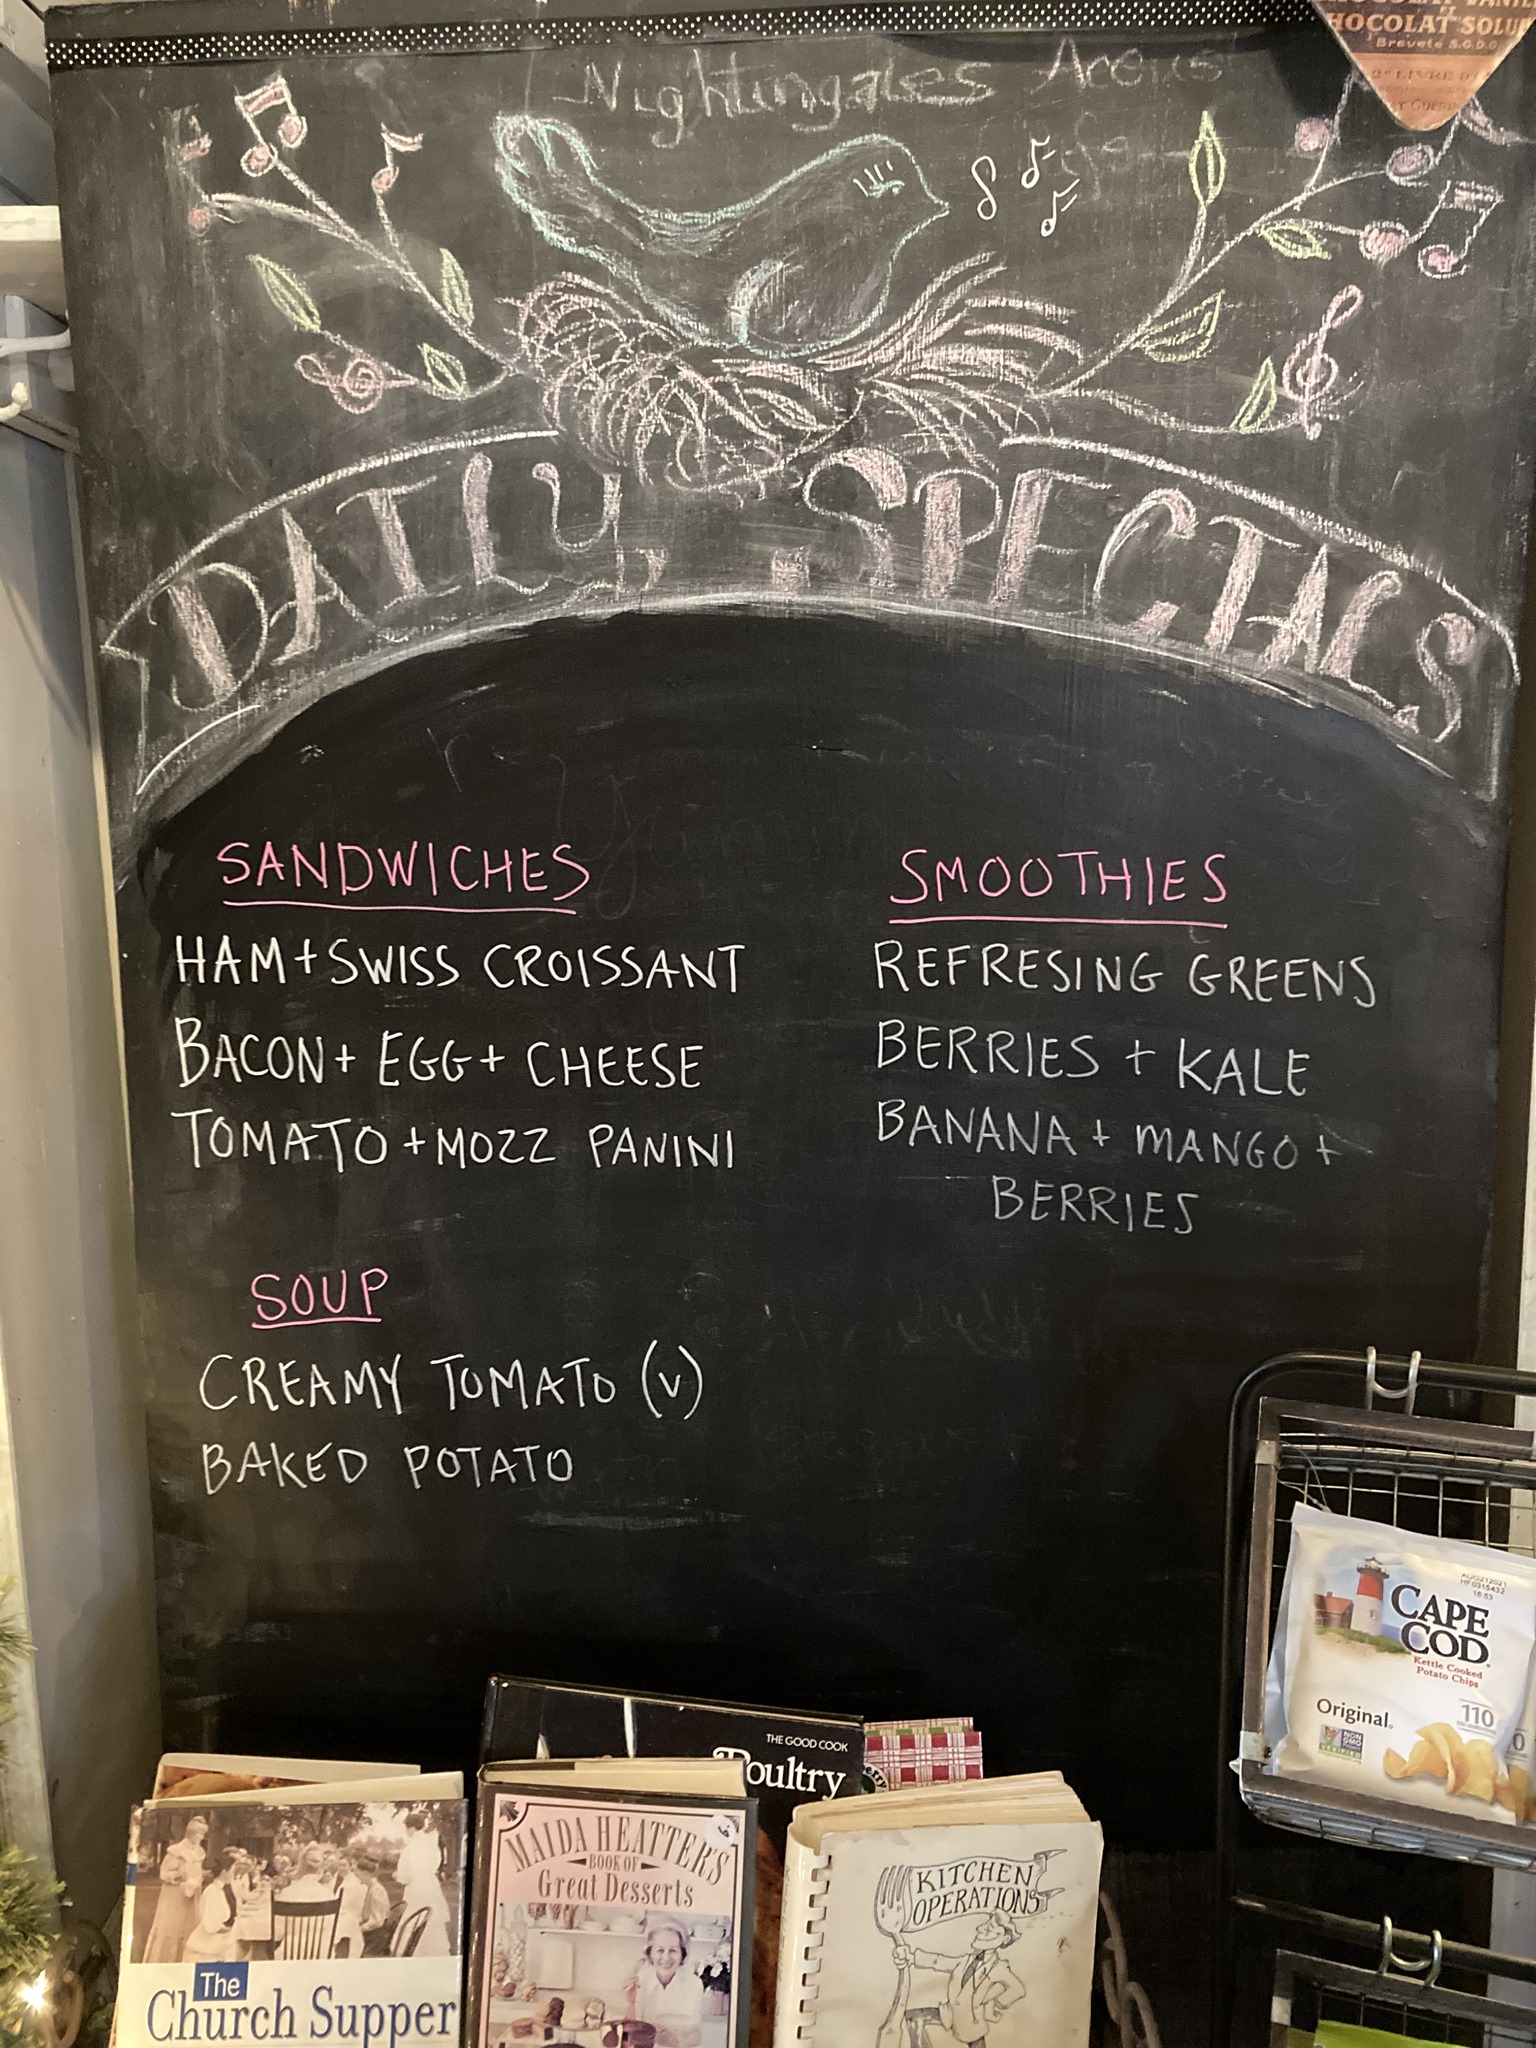 CHOCOLAT SOLU
Breveté S.G.D.G
Nightingales
DAILY SPECIALS
SANDWICHES
HAM + SWISS CROISSANT
BACON + EGG + CHEESE
TOMATO + MOZZ PANINI
SOUP
CREAMY TOMATO (V)
BAKED POTATO
SMOOTHIES
REFRESING GREENS
BERRIES + KALE
BANANA + MANGO +
BERRIES
AUG212021
HF0315432
16:53
CAPE
COD
Kettle Cooked
Potato Chips
Original
110
NON
GMO
THE GOOD COOK
Poultry
The
Church Supper
MAIDA HEATTER'S
BOOK OF
Great Desserts
KITCHEN
OPERATIONS